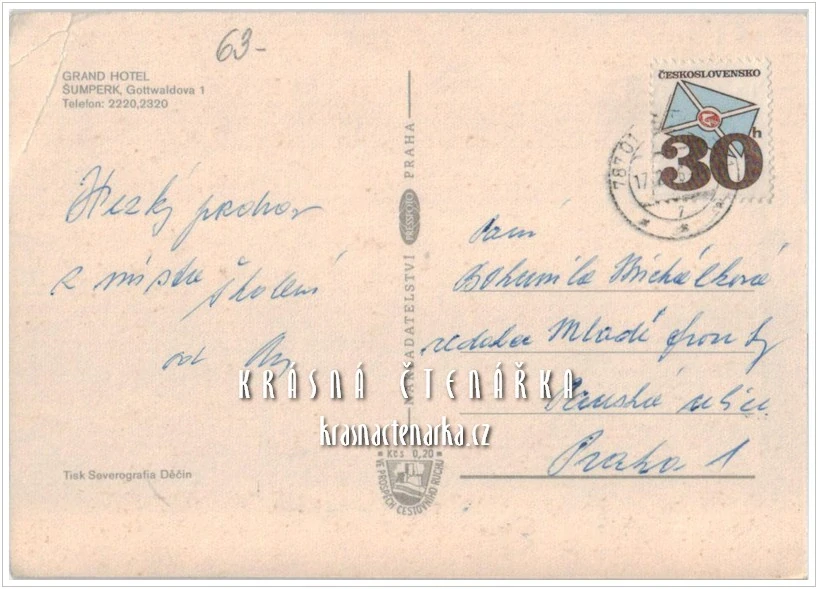 63-
GRAND HOTEL
ŠUMPERK, Gottwaldova 1
Telefon: 2220,2320
Hezký pozdrav
z místa školení
od
Tisk Severografia Děčín
NAKLADATELSTVÍ PRESSFOTO PRAHA
Kčs 0,20
VE PROSPĚCH CESTOVNÍHO RUCHU
ČESKOSLOVENSKO
30h
787 01
17.
1
Paní
Bohumila Michálková
redakce Mladé fronty
Panská ulice
Praha 1
KRÁSNÁ ČTENÁŘKA
krasnactenarka.cz